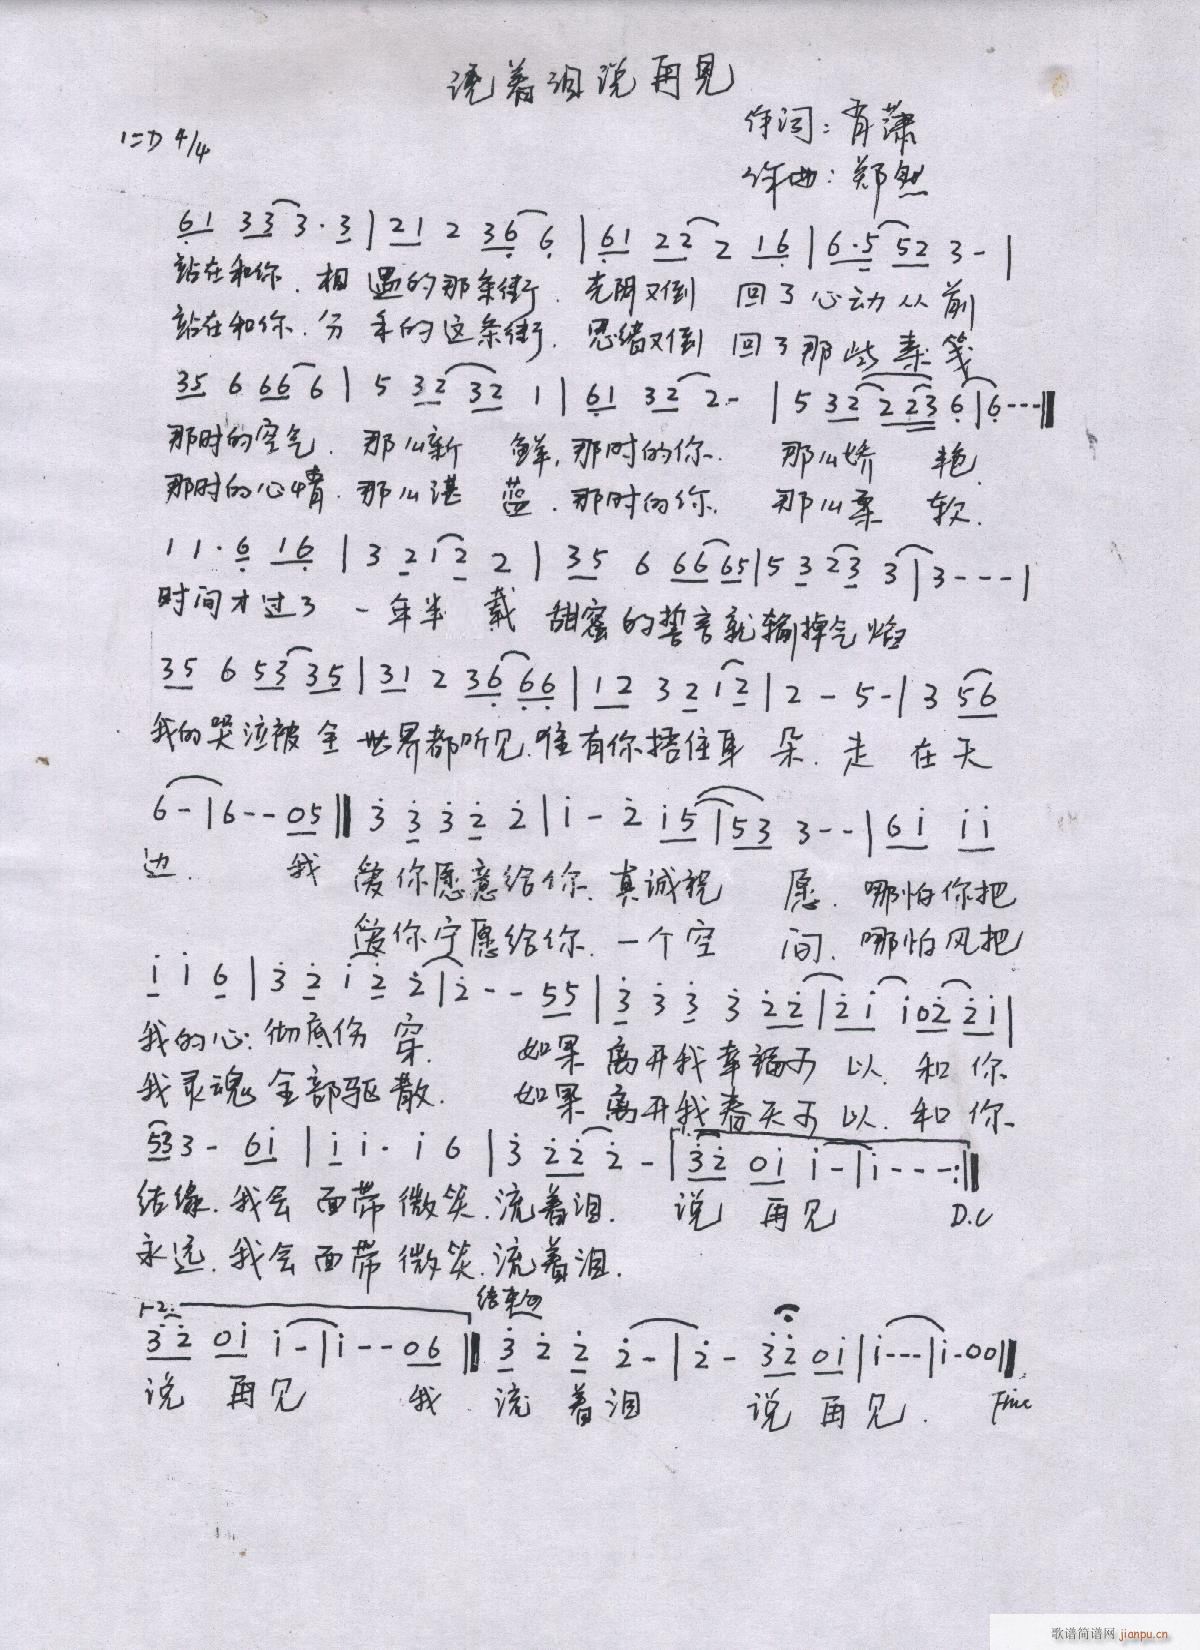 流着泪说再见
作词:肖潇
1=D 4/4
作曲:郑然
61 33 3·3 | 21 2 36 6 | 61 22 2 16 | 6·5 52 3- |
站在和你.相遇的那条街.光阴又倒 回了心动从前
站在和你.分手的这条街.思绪又倒 回了那些素笺
35 6 66 6 | 5 32 32 1 | 61 32 2- | 5 32 223 6 | 6---
那时的空气.那么新 鲜,那时的你. 那么娇 艳.
那时的心情.那么湛 蓝.那时的你. 那么柔 软.
11·6 16 | 3 212 2 | 35 6 66 65 | 5 323 3 | 3---|
时间才过了 一年半 载 甜蜜的誓言就输掉气焰
35 6 53 35 | 31 2 36 66 | 12 3 212 | 2-5- | 3 56
我的哭泣被全世界都听见.唯有你捂住耳 朵.走 在天
6- | 6--05 || 3 3 3 2 2 | 1-2 15 | 53 3-- | 61 11
边. 我 爱你愿意给你.真诚祝 愿.哪怕你把
爱你宁愿给你.一个空 间.哪怕风把
1 1 6 | 3 2 1 2 2 | 2--55 | 3 3 3 3 22 | 21 102 21 |
我的心:彻底伤 穿. 如果离开我幸福可 以.和你
我灵魂全部驱散. 如果离开我春天可 以.和你.
53 3- 61 | 1 1· 1 6 | 3 22 2- | 32 01 1- | 1---:||
结缘.我会面带微笑.流着泪. 说 再见 D.C
永远.我会面带微笑.流着泪.
1-2. 结束句
32 01 1- | 1--06 || 3 2 2 2- | 2- 32 01 | 1--- | 1-00 ||
说 再见 我 流着泪 说 再见. Fine
歌谱简谱网 jianpu.cn